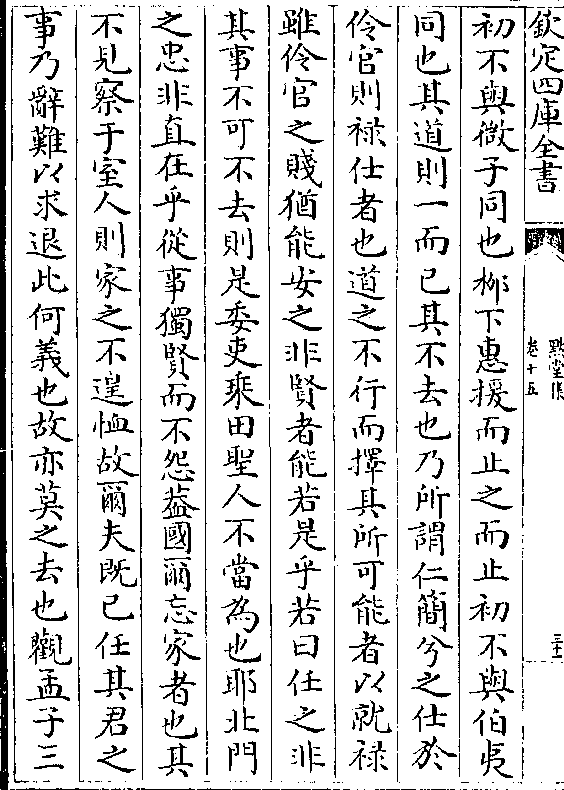 欽定四庫全書
默堂集
卷十五
初不與微子同也柳下惠援而止之而止初不與伯夷
同也其道則一而已其不去也乃所謂仁簡兮之仕於
伶官則禄仕者也道之不行而擇其所可能者以就禄
雖伶官之賤猶能安之非賢者能若是乎若曰任之非
其事不可不去則是委吏乗田聖人不當為也耶北門
之忠非直在乎從事獨賢而不怨葢國爾忘家者也其
不見察于室人則家之不遑恤故爾夫既已任其君之
事乃辭難以求退此何義也故亦莫之去也觀孟子三